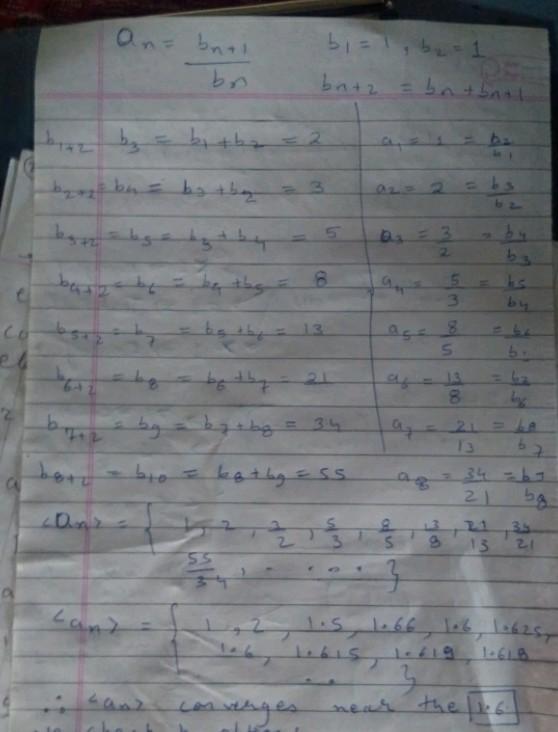 an = bn+1 / bn    b1 = 1, b2 = 1
bn+2 = bn + bn+1
b1+2 b3 = b1 + b2 = 2    a1 = 1 = b2/b1
b2+2 = b4 = b3 + b2 = 3    a2 = 2 = b3/b2
b3+2 = b5 = b3 + b4 = 5    a3 = 3/2 = b4/b3
b4+2 = b6 = b4 + b5 = 8    a4 = 5/3 = b5/b4
b5+2 = b7 = b5 + b6 = 13    a5 = 8/5 = b6/b
b6+2 = b8 = b6 + b7 = 21    a6 = 13/8 = b7/b6
b7+2 = b9 = b7 + b8 = 34    a7 = 21/13 = b8/b7
b8+2 = b10 = b8 + b9 = 55    a8 = 34/21 = b9/b8
<an> = { 1, 2, 3/2, 5/3, 8/5, 13/8, 21/13, 34/21
55/34, . . . . . }
<an> = { 1, 2, 1.5, 1.66, 1.6, 1.625,
1.6, 1.615, 1.619, 1.618
. . }
∴ <an> converges near the 1.6